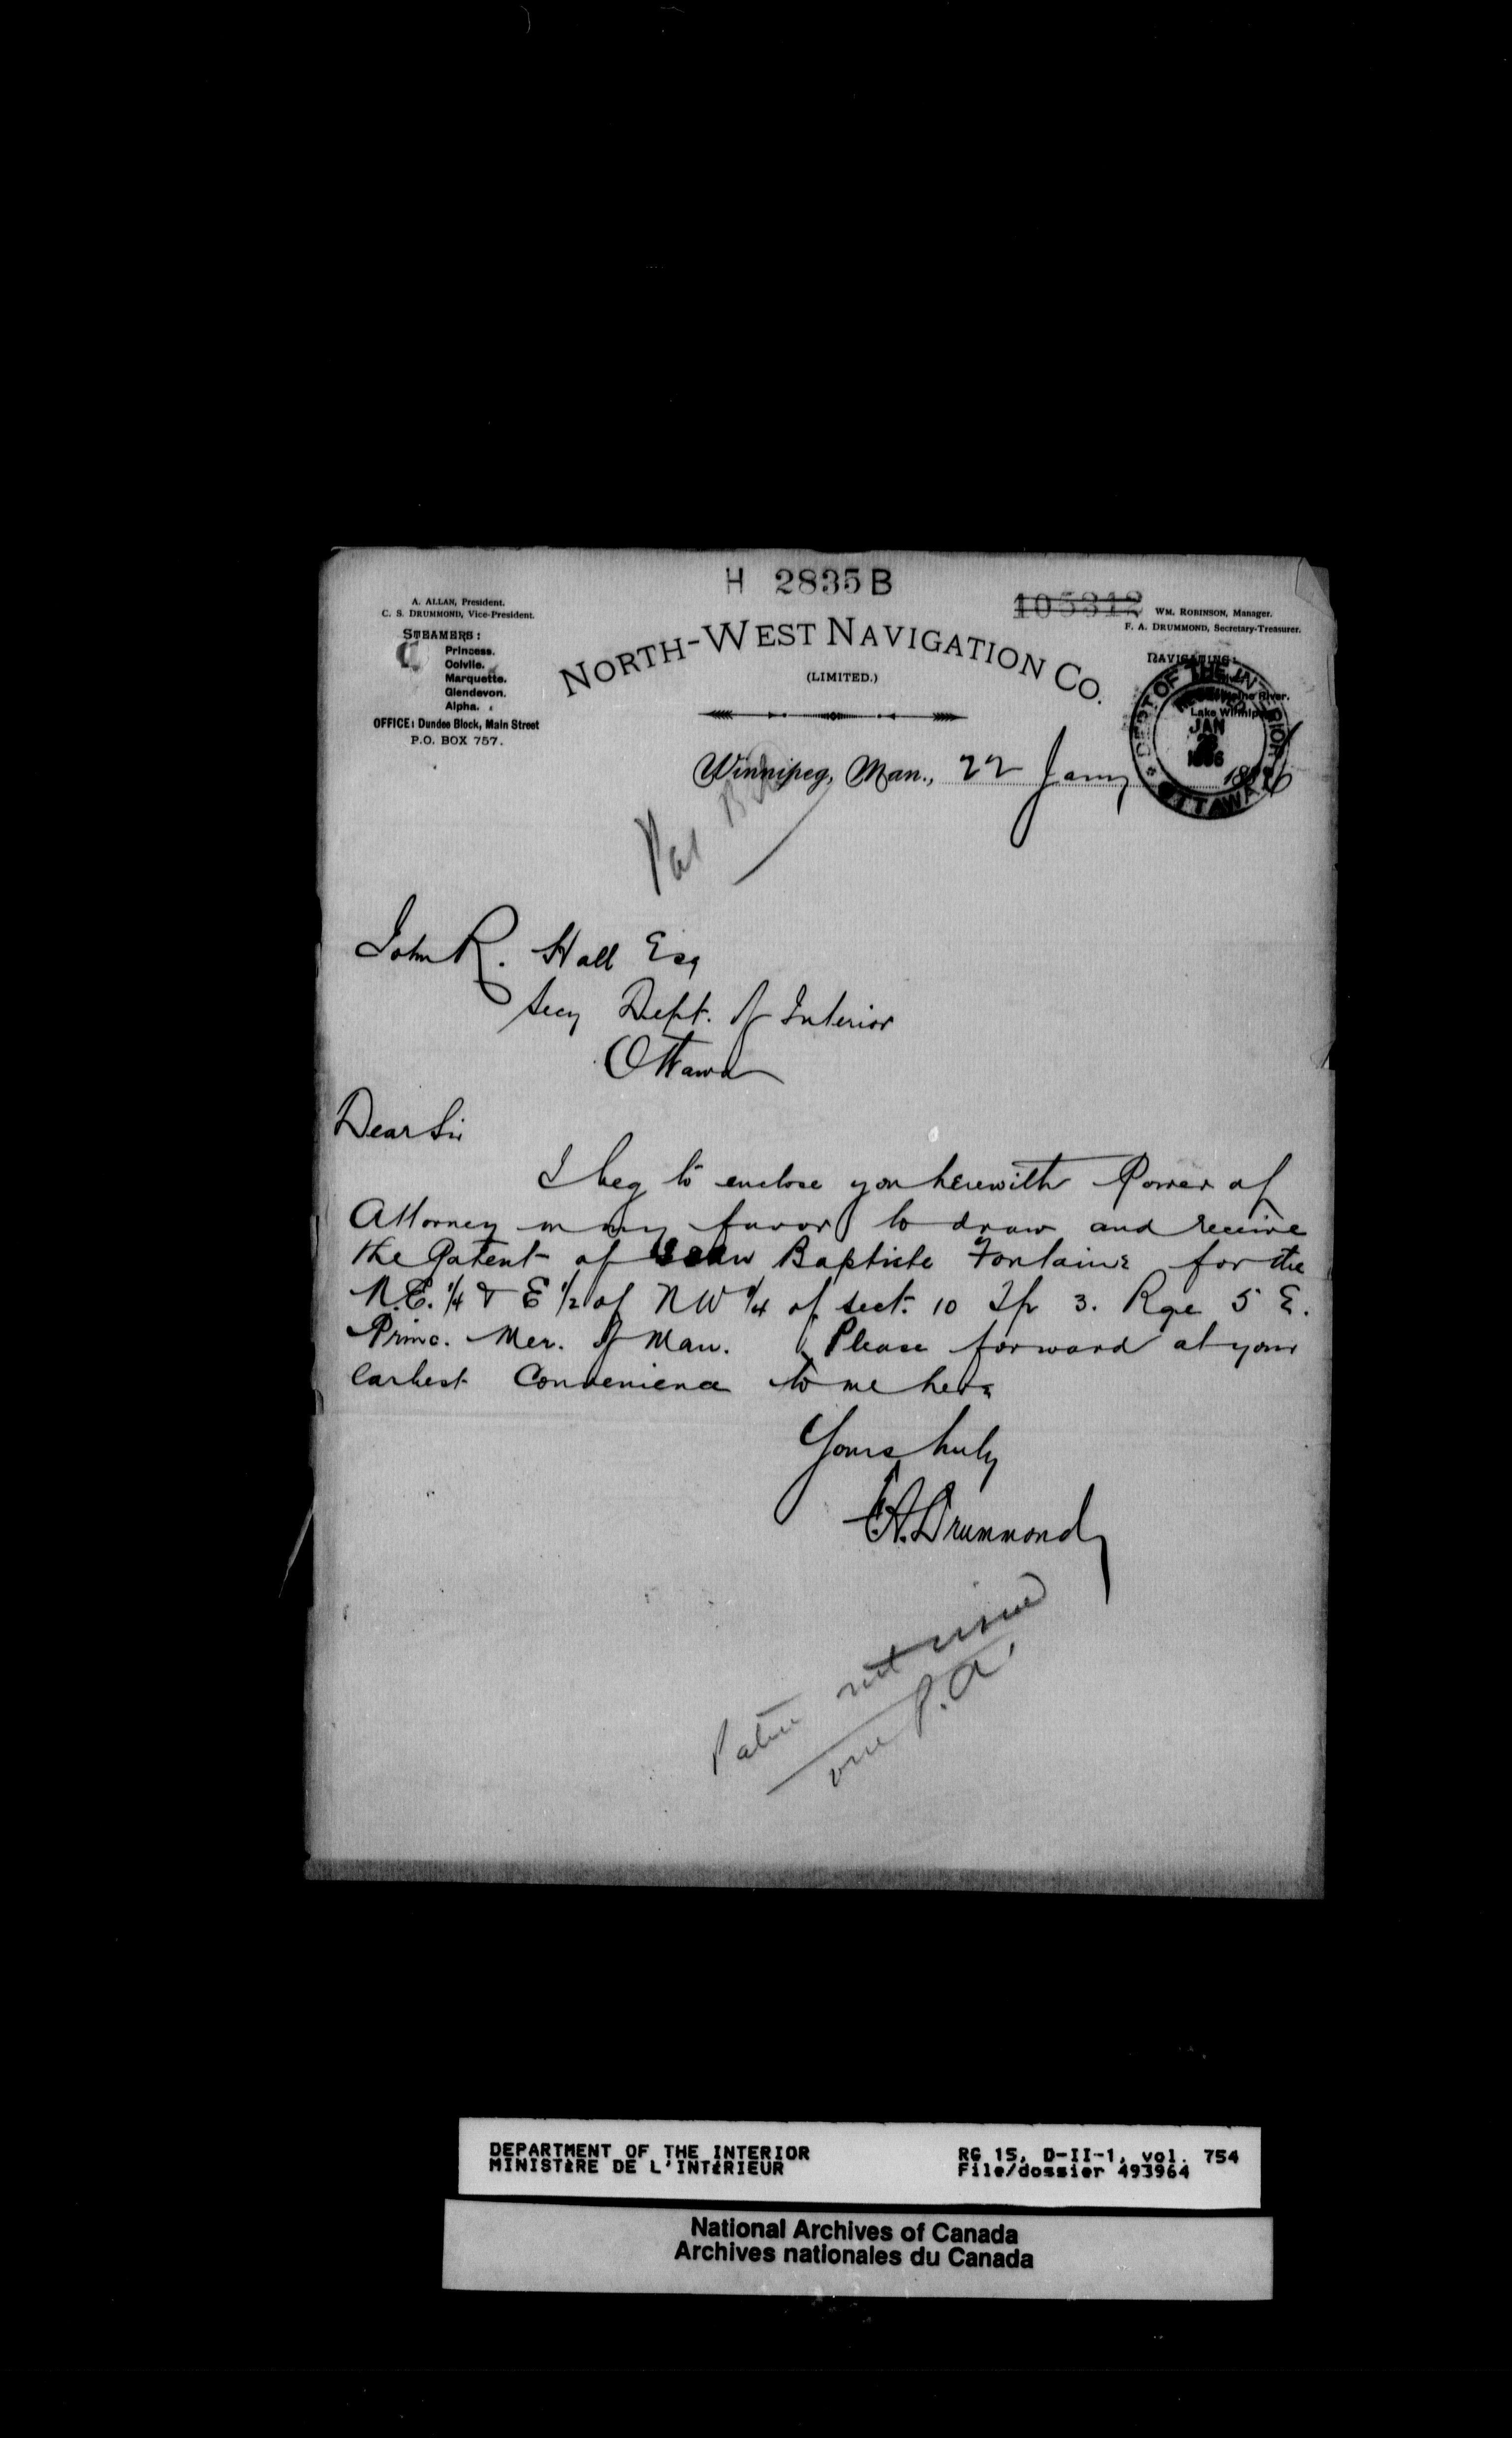 H 2835 B
105312
A. ALLAN, President.
C. S. DRUMMOND, Vice-President.
WM. ROBINSON, Manager.
F. A. DRUMMOND, Secretary-Treasurer.
STEAMERS:
Princess.
Colvile.
Marquette.
Glendevon.
Alpha.
OFFICE: Dundee Block, Main Street
P.O. BOX 757.
NORTH-WEST NAVIGATION CO.
(LIMITED.)
NAVIGATING:
River.
Lake Winnipeg
DEPT OF THE INTERIOR
JAN
1886
OTTAWA
Winnipeg, Man., 22 Jany 1886
Pat
John R. Hall Esq
Secy Dept. of Interior
Ottawa
Dear Sir
I beg to enclose you herewith Power of
Attorney in my favor to draw and receive
the Patent of Jean Baptiste Fontaine for the
N.E. 1/4 & E 1/2 of NW 1/4 of sect. 10 Tp 3. Rge 5 E.
Princ. Mer. of Man. Please forward at your
earliest Convenience to me here
Yours truly
F.A. Drummond
Patent not issued
one P.A.
DEPARTMENT OF THE INTERIOR
MINISTÈRE DE L'INTÉRIEUR
RG 15, D-II-1, vol. 754
File/dossier 493964
National Archives of Canada
Archives nationales du Canada